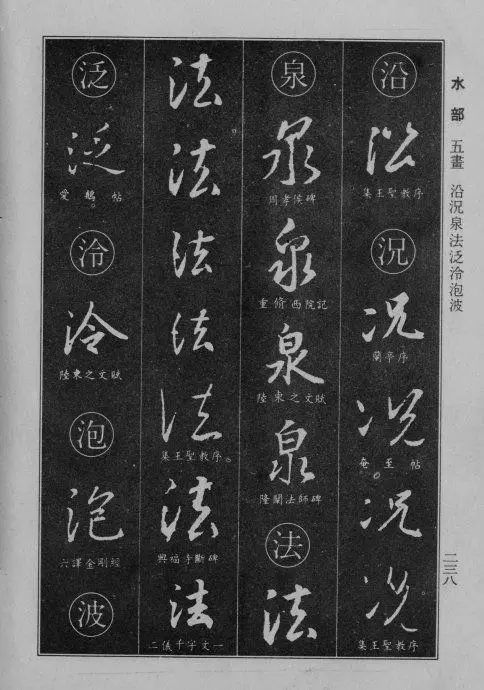 水部 五畫 沿況泉法泛泠泡波
二三八
沿
沿
集王聖敎序
況
況
蘭亭序
況
奄至帖
況
況
集王聖敎序
泉
泉
周孝侯碑
泉
重脩西院記
泉
陸柬之文賦
泉
隆闡法師碑
法
法
法
法
法
法
法
集王聖敎序
法
興福寺斷碑
法
二儀千字文一
泛
泛
愛鵝帖
泠
泠
陸柬之文賦
泡
泡
六譯金剛經
波